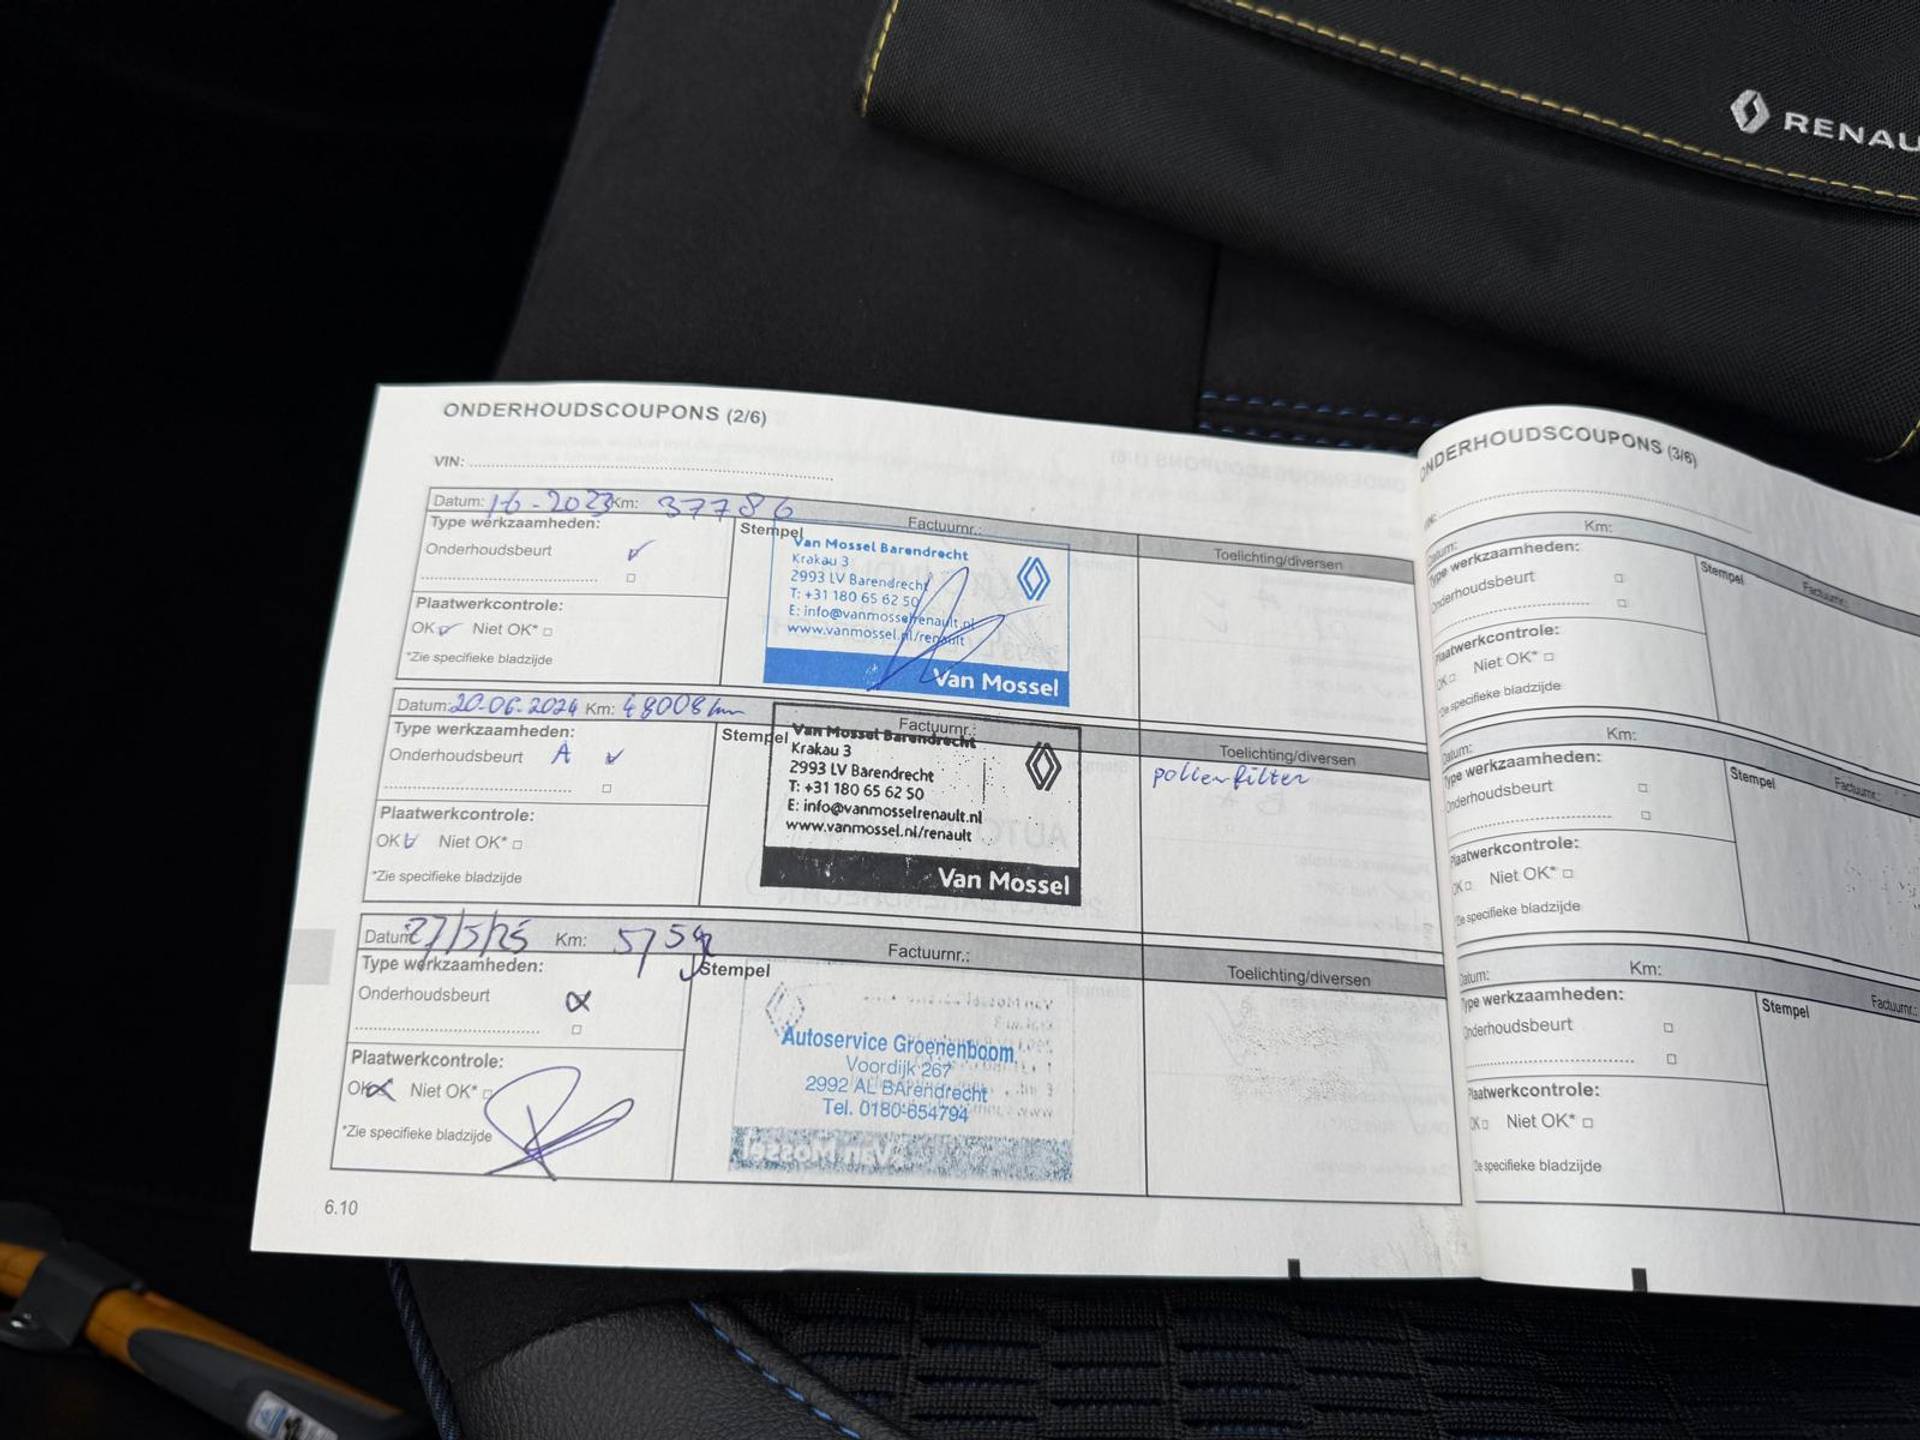 RENAU
ONDERHOUDSCOUPONS (2/6)
VIN:
Datum: 1-6-2023 Km: 37786
Type werkzaamheden:
Stempel
Factuurnr.:
Toelichting/diversen
Onderhoudsbeurt
Plaatwerkcontrole:
OK Niet OK*
*Zie specifieke bladzijde
Van Mossel Barendrecht
Krakau 3
2993 LV Barendrecht
T: +31 180 65 62 50
E: info@vanmosselrenault.nl
www.vanmossel.nl/renault
Van Mossel
Datum: 20-06-2024 Km: 48008 km
Type werkzaamheden:
Stempel
Factuurnr.:
Toelichting/diversen
Onderhoudsbeurt A
Plaatwerkcontrole:
OK Niet OK*
*Zie specifieke bladzijde
Van Mossel Barendrecht
Krakau 3
2993 LV Barendrecht
T: +31 180 65 62 50
E: info@vanmosselrenault.nl
www.vanmossel.nl/renault
Van Mossel
pollenfilter
Datum: 27/5/25 Km:
Type werkzaamheden:
Stempel
Factuurnr.:
Toelichting/diversen
Onderhoudsbeurt
Plaatwerkcontrole:
OK Niet OK*
*Zie specifieke bladzijde
Autoservice Groenenboom
Voordijk 267
2992 AL BArendrecht
Tel. 0180-654794
Van Mossel
6.10
ONDERHOUDSCOUPONS (3/6)
Datum: Km:
Type werkzaamheden:
Stempel
Factuurnr.:
Onderhoudsbeurt
Plaatwerkcontrole:
OK Niet OK*
*Zie specifieke bladzijde
Datum: Km:
Type werkzaamheden:
Stempel
Factuurnr.:
Onderhoudsbeurt
Plaatwerkcontrole:
OK Niet OK*
*Zie specifieke bladzijde
Datum: Km:
Type werkzaamheden:
Stempel
Factuurnr.:
Onderhoudsbeurt
Plaatwerkcontrole:
OK Niet OK*
*Zie specifieke bladzijde